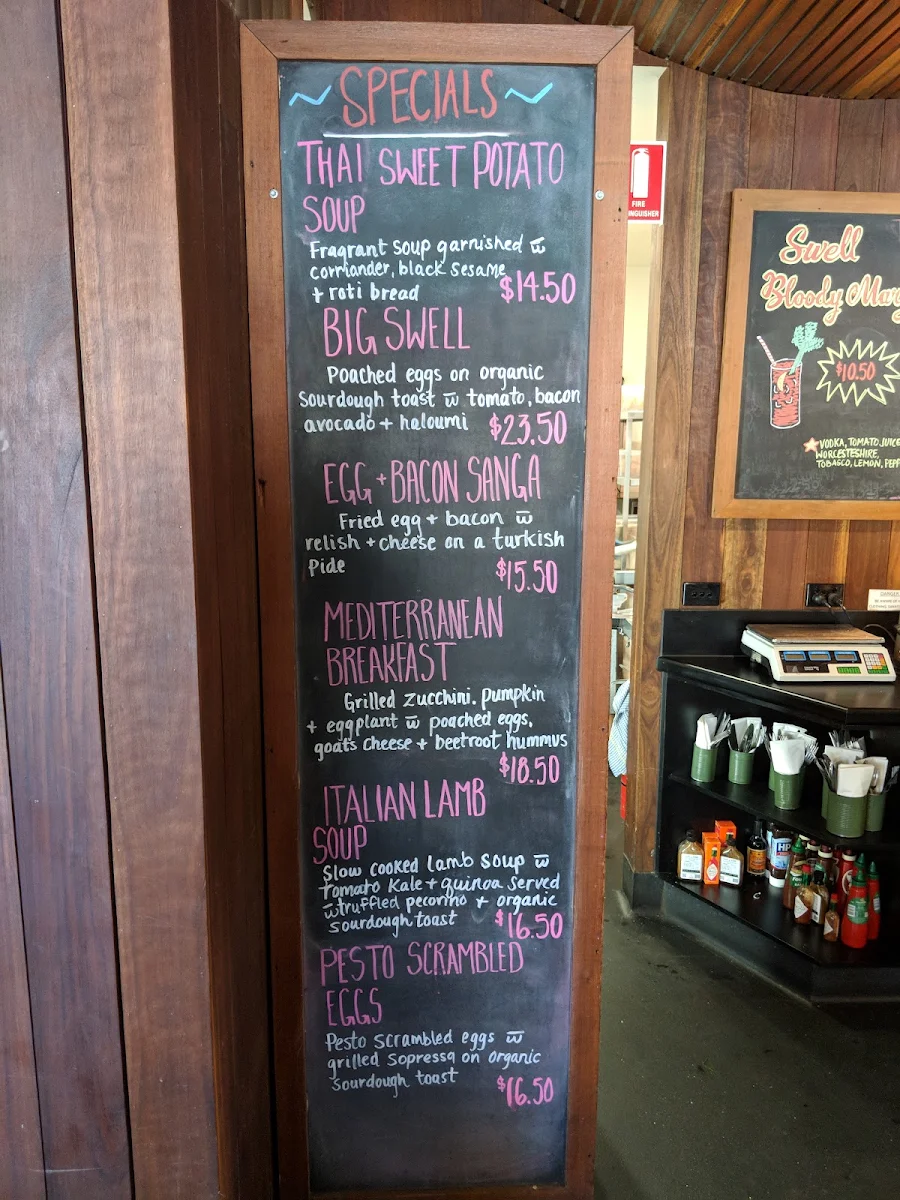 SPECIALS
THAI SWEET POTATO
SOUP
Fragrant soup garnished w̅
corriander, black sesame
+ roti bread $14.50
BIG SWELL
Poached eggs on organic
sourdough toast w̅ tomato, bacon
avocado + haloumi $23.50
EGG + BACON SANGA
Fried egg + bacon w̅
relish + cheese on a turkish
Pide $15.50
MEDITERRANEAN
BREAKFAST
Grilled zucchini. pumpkin
+ eggplant w̅ poached eggs,
goats cheese + beetroot hummus
$18.50
ITALIAN LAMB
SOUP
Slow cooked lamb soup w̅
tomato kale + quinoa served
w̅ truffled pecorino + organic
sourdough toast $16.50
PESTO SCRAMBLED
EGGS
Pesto scrambled eggs w̅
grilled sopressa on organic
sourdough toast $16.50
FIRE
INGUISHER
Swell
Bloody Mary
$10.50
VODKA, TOMATO JUICE
WORCESTESHIRE,
TOBASCO, LEMON, PEPP
DANGER
HP